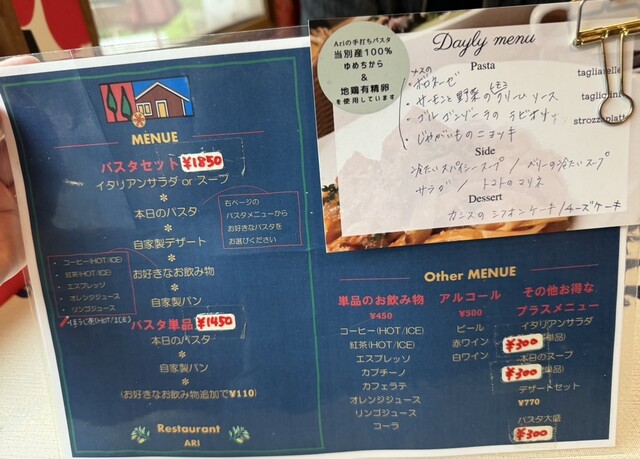 MENUE
パスタセット ¥1850
イタリアンサラダ or スープ
*
本日のパスタ
*
自家製デザート
*
お好きなお飲み物
*
自家製パン
右ページの
パスタメニューから
お好きなパスタを
お選びください
・コーヒー(HOT/ICE)
・紅茶(HOT/ICE)
・エスプレッソ
・オレンジジュース
・リンゴジュース
パスタ単品 ¥1450
本日のパスタ
*
自家製パン
*
(お好きなお飲み物追加で¥110)
Restaurant
ARI
Ariの手打ちパスタ
当別産100%
ゆめちから
&
地鶏有精卵
を使用しています
Dayly menu
Pasta
ナスの
・ボロネーゼ
tagliatelle
レモン
・サーモンと野菜のクリームソース
・ゴルゴンゾーラのラビオリ
・じゃがいものニョッキ
Side
冷たいスパイシースープ / ベリーの冷たいスープ
サラダ / トマトのマリネ
Dessert
カシスのシフォンケーキ/チーズケーキ
Other MENUE
単品のお飲み物
¥450
コーヒー(HOT/ICE)
紅茶(HOT/ICE)
エスプレッソ
カプチーノ
カフェラテ
オレンジジュース
リンゴジュース
コーラ
アルコール
¥500
ビール
赤ワイン
白ワイン
その他お得な
プラスメニュー
イタリアンサラダ
¥300 単品)
本日のスープ
¥300 単品)
デザートセット
¥770
パスタ大盛
¥300